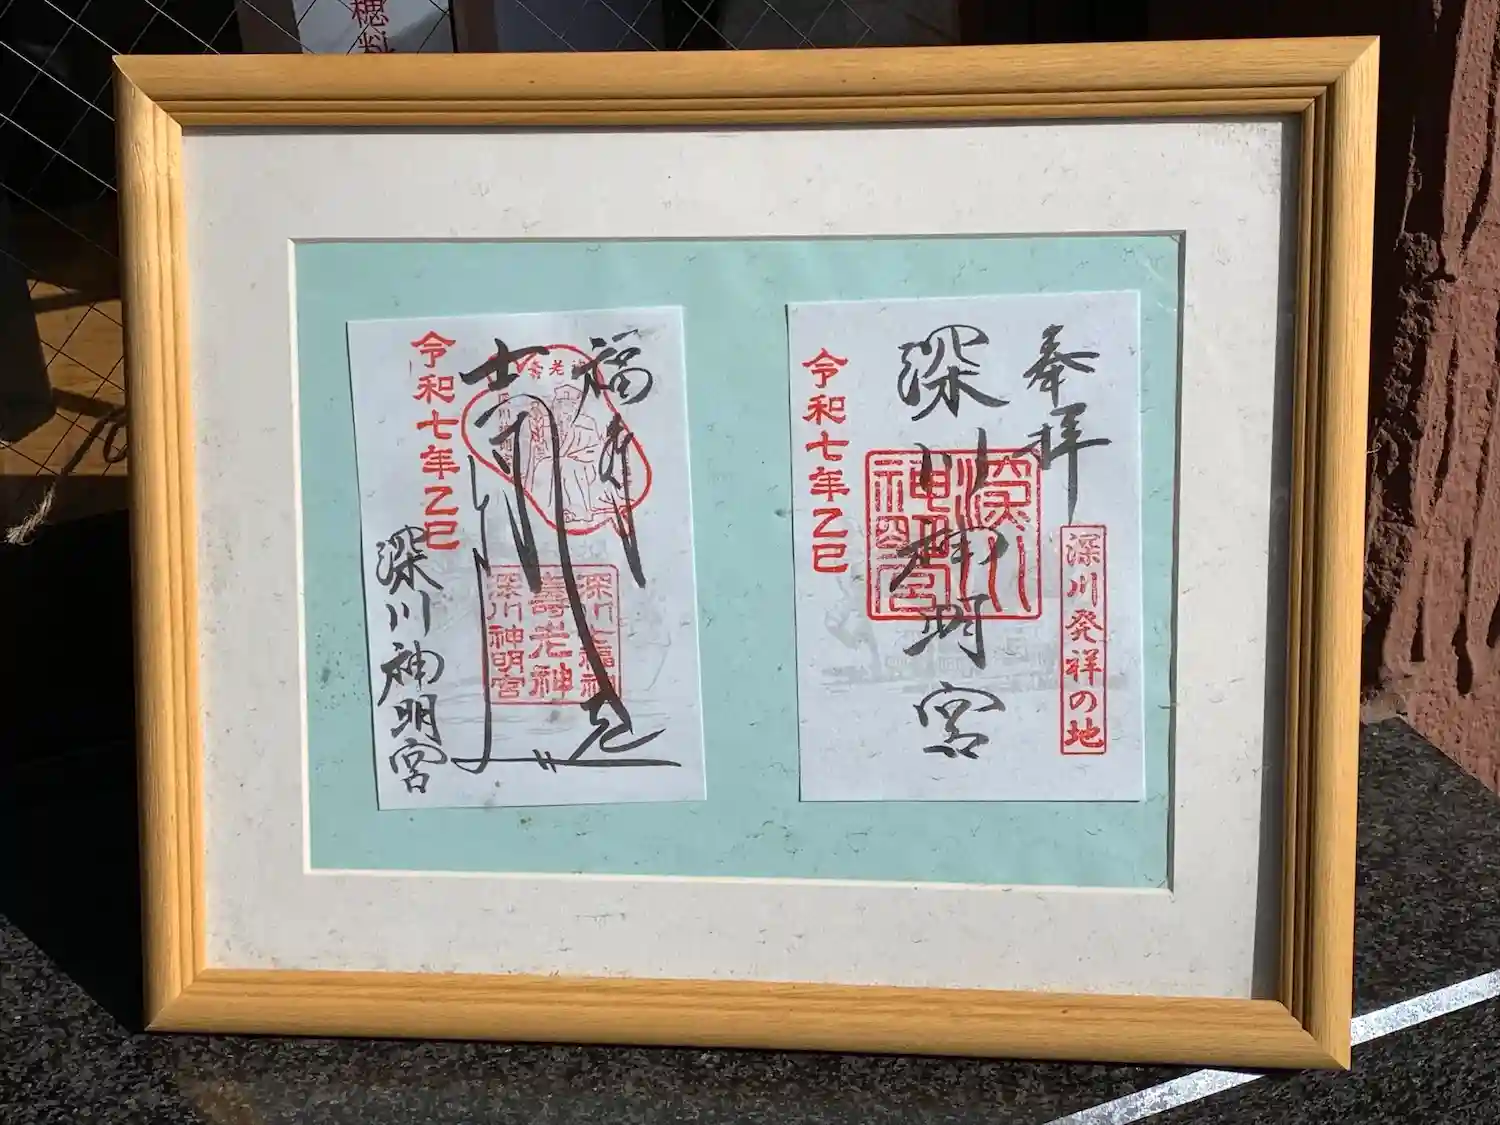 穂料
奉拝
深川発祥の地
深川神明宮
深川神明宮
令和七年乙巳
福寿
寿老神
深川七福神
壽老神
深川神明宮
令和七年乙巳
深川神明宮